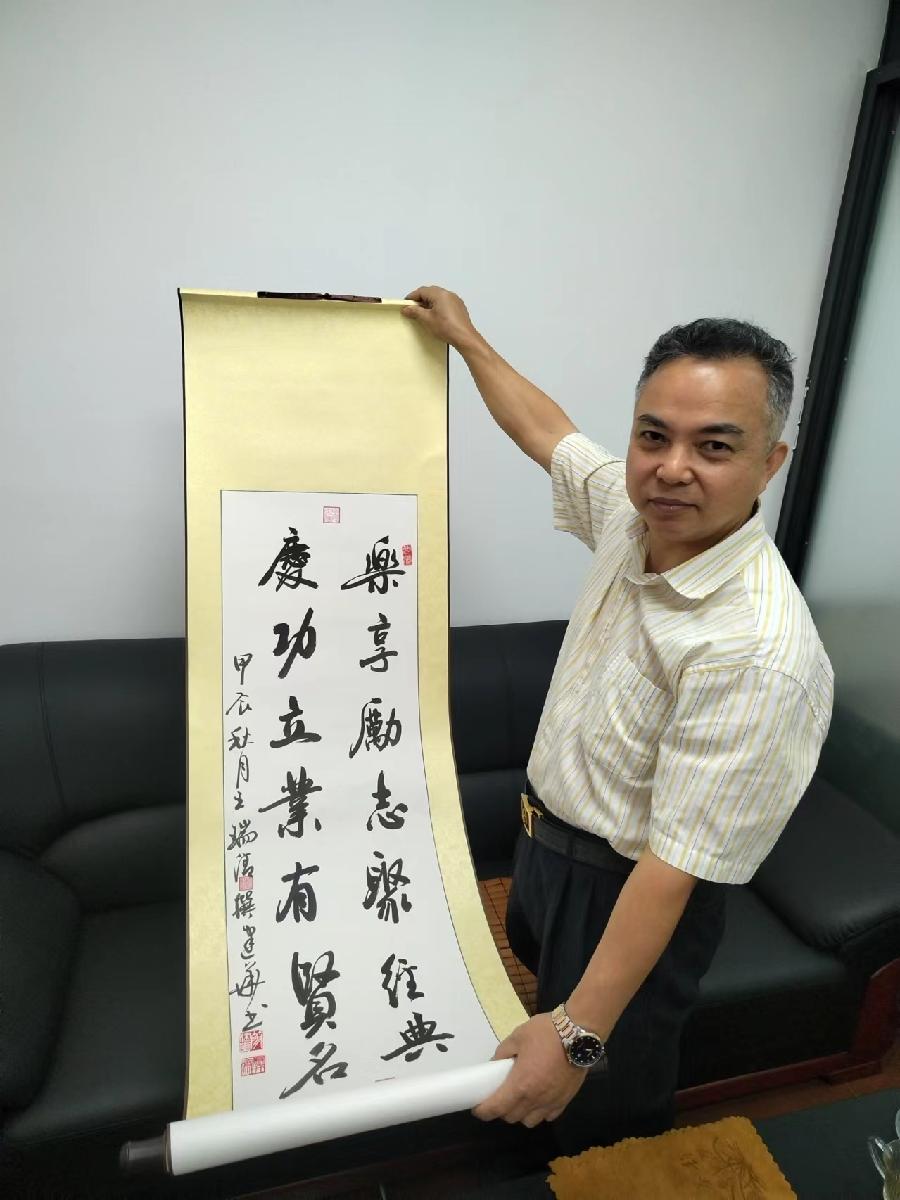 樂享勵志聚經典
慶功立業有賢名
甲辰秋月王瑞清撰建華書